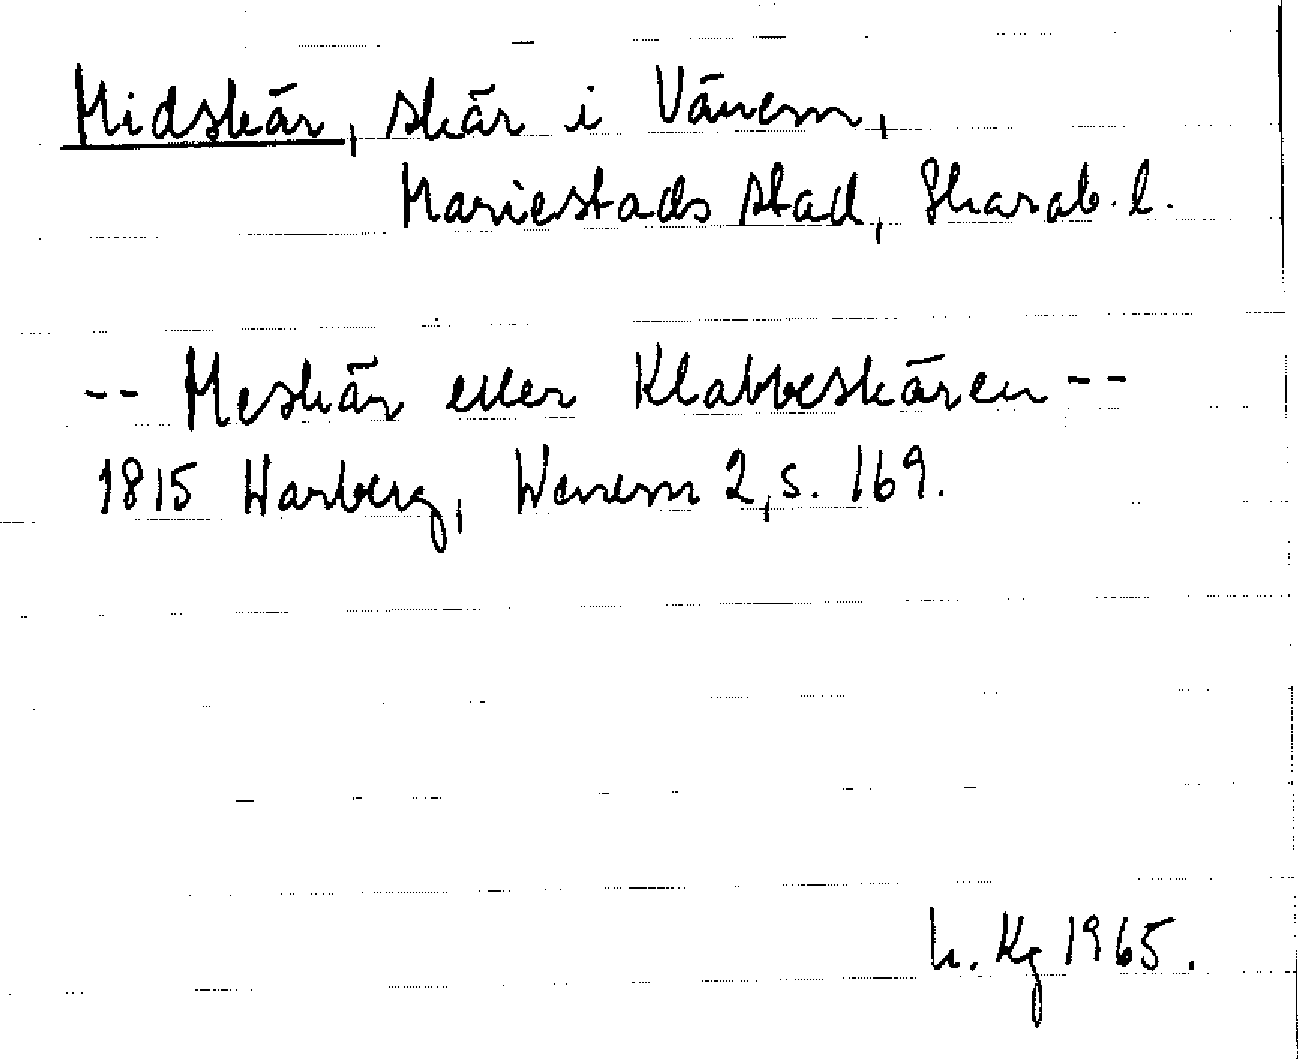 Midskär, skär i Vänern,
Mariestads stad, Skarab. l.
-- Meskär eller Klabbeskären --
1815 Warberg, Wenern 2, s. 169.
h. Kg 1965.